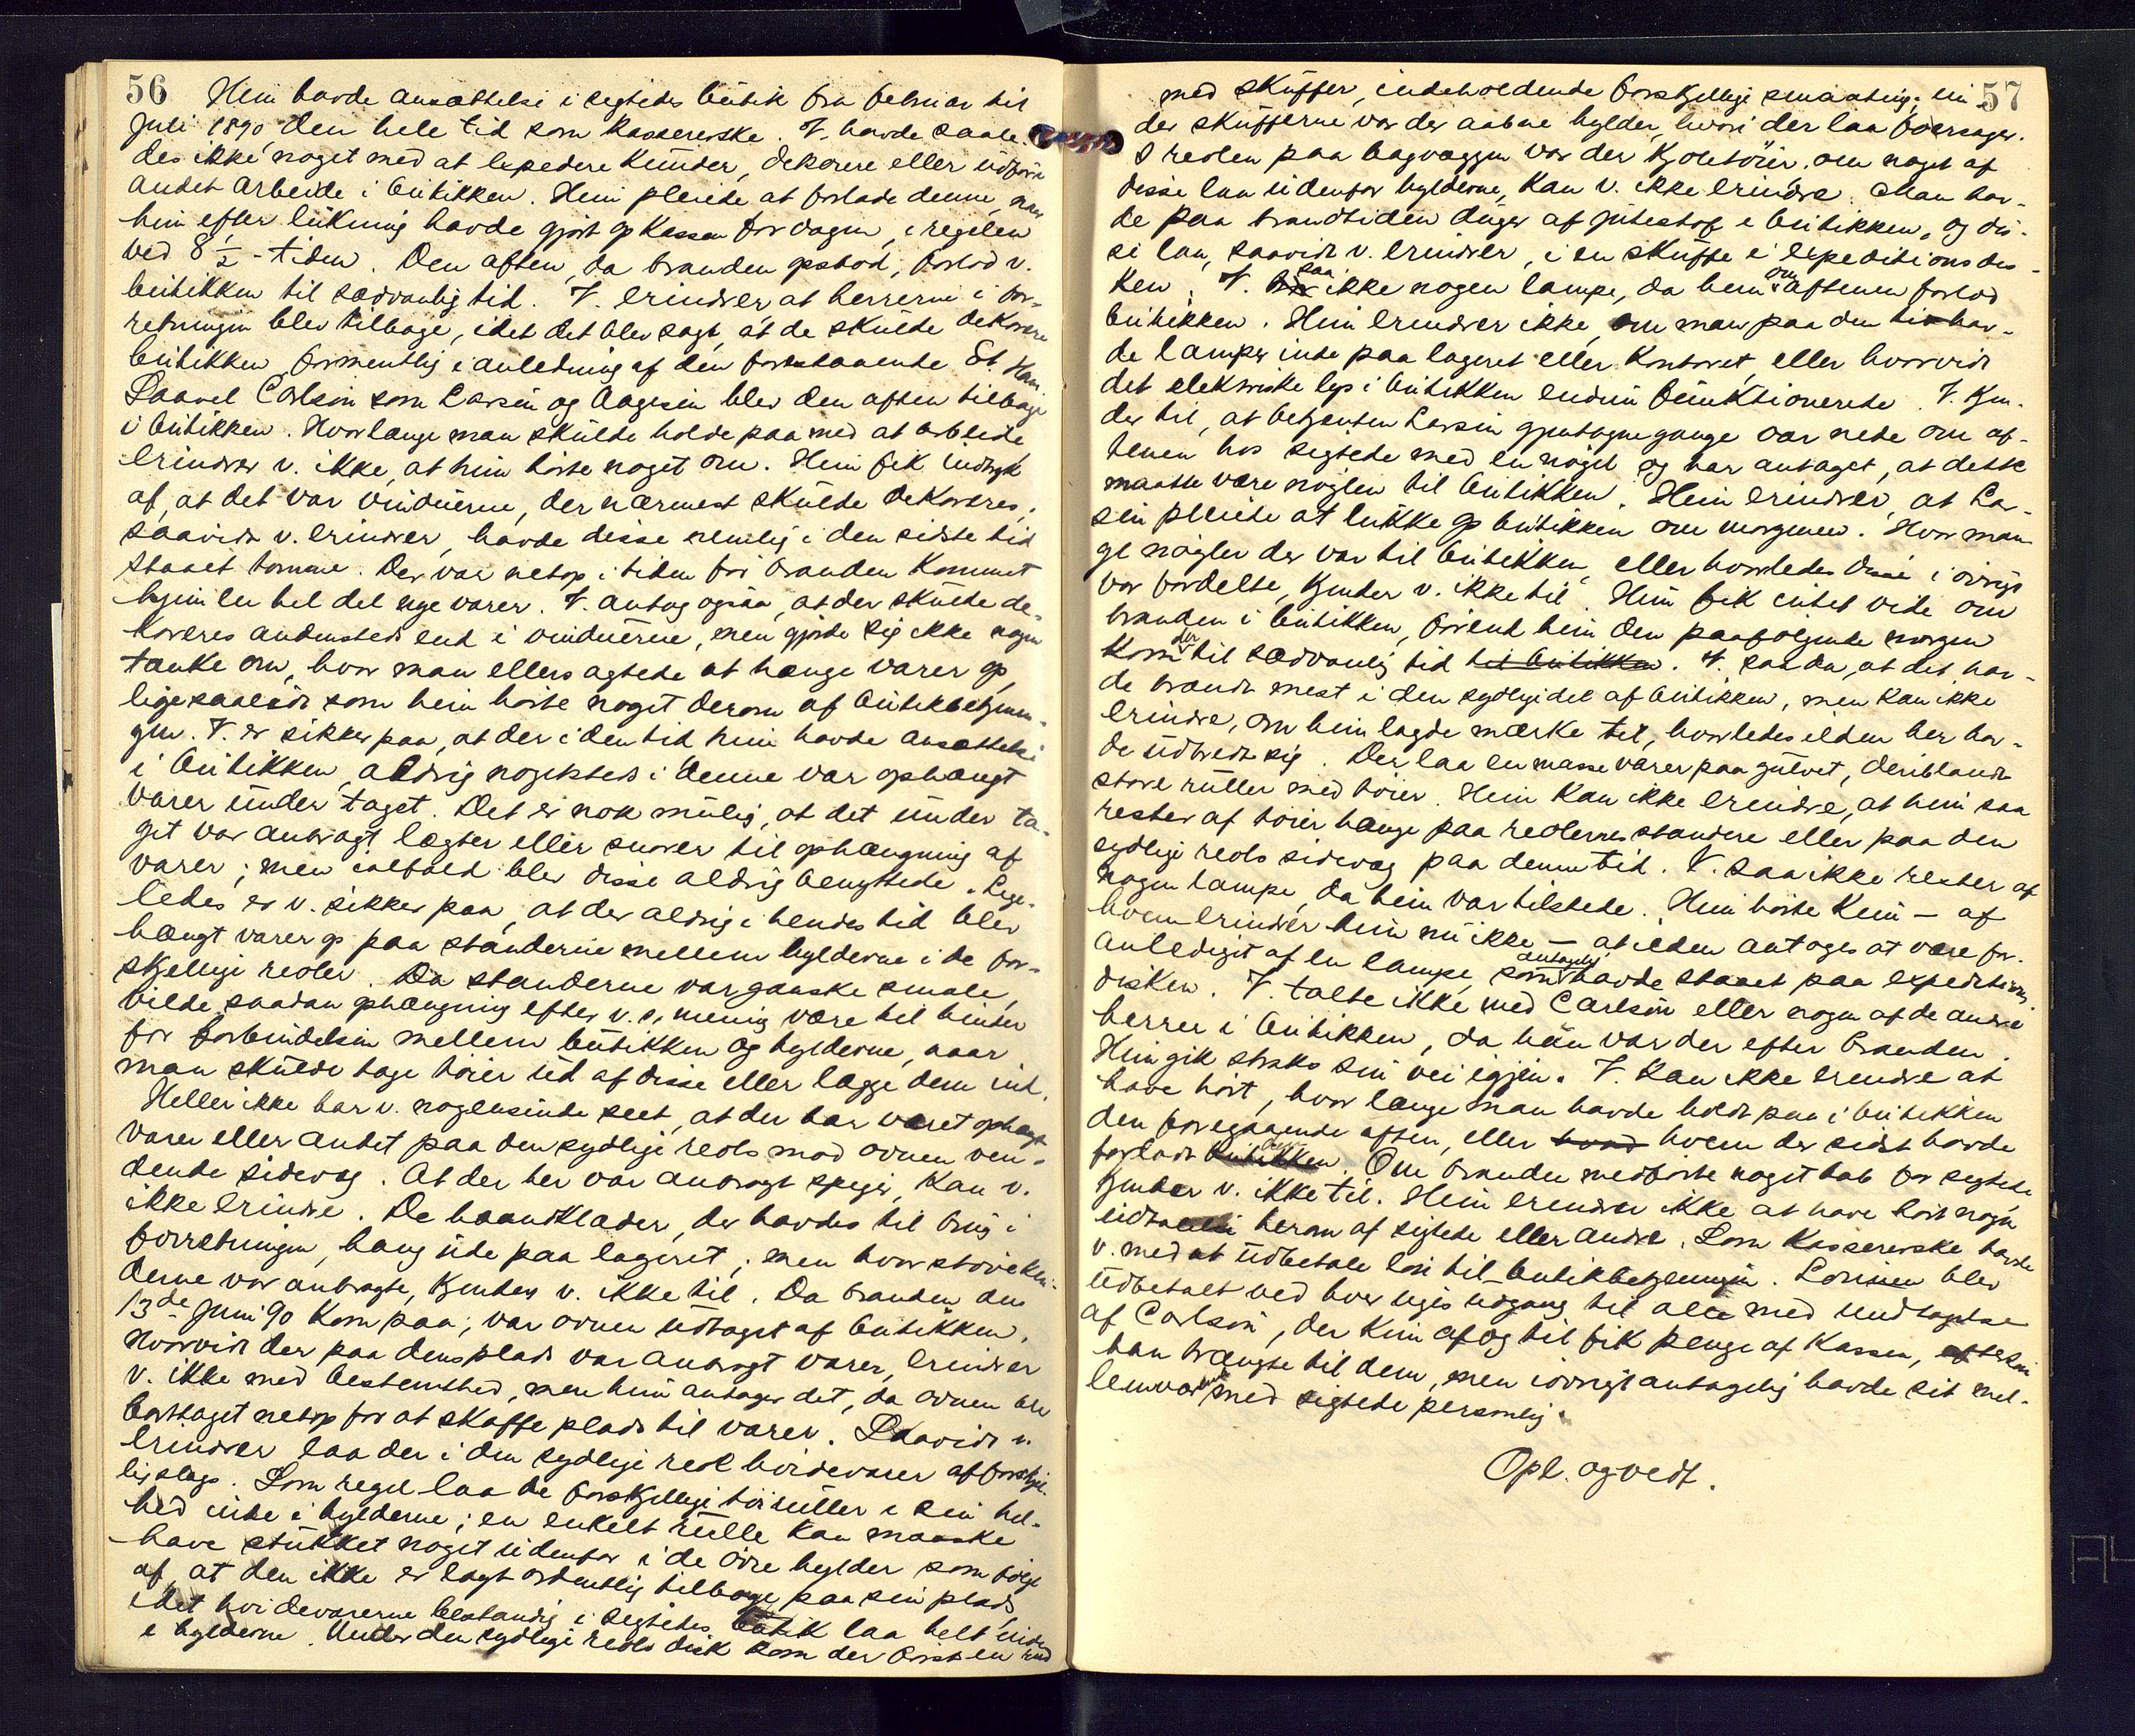 56
Hun havde ansættelse i sigtedes butik fra februar til
Juli 1890, den hele tid som kassererske. V. havde saale-
des ikke noget med at expedere kunder, dekorere eller udføre
andet arbeide i butikken. Hun pleiede at forlade denne, naar
hun efter lukning havde gjort op kassen for dagen, i regelen
ved 8 1/2-tiden. Den aften, da branden opstod, forlod v.
butikken til sædvanlig tid. V. erindrer, at herrerne i for-
retningen blev tilbage, idet det blev sagt, at de skulde dekorere
butikken formentlig i anledning af den forestaaende St. Hans
Saavel Carlsen som Larsen og Aagesen blev den aften tilbage
i butikken. Hvorlænge man skulde holde paa med at arbeide
erindrer v. ikke, at hun hørte noget om. Hun fik indtryk
af, at det var vinduerne, der nærmest skulde dekoreres;
saavidt v. erindrer, havde disse nemlig i den sidste tid
staaet tomme. Der var netop i tiden før branden kommet
hjem en hel del nye varer. V. antog ogsaa, at der skulde de-
koreres andensteds end i vinduerne, men gjorde sig ikke nogen
tanke om, hvor man ellers agtede at hænge varer op,
ligesaalidt som hun hørte noget derom af butikbetjenin-
gen. V. er sikker paa, at der i den tid hun havde ansættelse
i butikken, aldrig nogetsteds i denne var ophængt
varer under taget. Det er nok mulig, at det under ta-
get var anbragt lægter eller snorer til ophængning af
varer; men ialfald blev disse aldrig benyttede. Lige-
ledes er v. sikker paa, at der aldrig i hendes tid blev
hængt varer op paa standerne mellem hylderne i de for-
skjellige reoler. Da standerne var ganske smale,
vilde saadan ophængning efter v.s mening være til hinder
for forbindelsen mellem butikken og hylderne, naar
man skulde tage tøier ud af disse eller lægge dem ind.
Heller ikke har v. nogensinde seet, at der har været ophængt
varer eller andet paa den sydlige reols mod ovnen ven-
dende sidevæg. At der her var anbragt spiger, kan v.
ikke erindre. De haandklæder, der havdes til brug i
forretningen, hang ude paa lageret; men hvor støveklu-
derne var anbragte, kjender v. ikke til. Da branden den
13de Juni 90 kom paa, var ovnen udtaget af butikken.
Hvorvidt der paa dens plads var anbragt varer, erindrer
v. ikke med bestemthed, men hun antager det, da ovnen blev
borttaget netop for at skaffe plads til varer. Saavidt v.
erindrer laa der i den sydlige reol hvidevarer af forskjel-
lig slags. Som regel laa de forskjellige tøiruller i sin hel-
hed inde i hylderne; en enkelt rulle kan maaske
have stukket noget udenfor i de øvre hylder som følge
af, at den ikke er lagt ordentlig tilbage paa sin plads,
idet hvidevarerne bestandig i sigtedes butik laa helt inde
i hylderne. Under den sydlige reols disk kom der først en rad
57
med skuffer, indeholdende forskjellige smaating; un-
der skufferne var der aabne hylder, hvori der laa foersager.
I reolen paa bagvæggen var der kjoletøier, om noget af
disse laa udenfor hylderne, kan v. ikke erindre. Man hav-
de paa brandtiden duger af jutestof i butikken, og dis-
se laa, saavidt v. erindrer, i en skuffe i expeditionsdis-
ken. V. saa ikke nogen lampe, da hun om aftenen forlod
butikken. Hun erindrer ikke, om man paa den tid hav-
de lamper inde paa lageret eller kontoret, eller hvorvidt
det elektriske lys i butikken endnu funktionerede. V. kjen-
der til, at betjenten Larsen gjentagne gange var nede om af-
tenen hos sigtede med en nøgel og har antaget, at dette
maatte være nøglen til butikken. Hun erindrer, at La-
sen pleiede at lukke op butikken om morgenen. Hvor man-
ge nøgler der var til butikken, eller hvorledes disse i øvrigt
var fordelte, kjender v. ikke til. Hun fik intet vide om
branden i butikken, førend hun den paafølgende morgen
kom der til sædvanlig tid til butikken. V. saa da, at det hav-
de brændt mest i den sydlige del af butikken, men kan ikke
erindre, om hun lagde mærke til, hvorledes ilden her hav-
de udbredt sig. Der laa en masse varer paa gulvet, deriblandt
store ruller med tøier. Hun kan ikke erindre, at hun saa
rester af tøier hænge paa reolernes standere eller paa den
sydlige reols sidevæg paa denne tid. V. saa ikke rester af
nogen lampe, da hun var tilstede. Hun hørte kun – af
hvem erindrer hun nu ikke – at ilden antoges at være for-
anlediget af en lampe, som antagelig havde staaet paa expeditions-
disken. V. talte ikke med Carlsen eller nogen af de andre
herrer i butikken, da hun var der efter branden.
Hun gik straks sin vei igjen. V. kan ikke erindre at
have hørt, hvor længe man havde holdt paa i butikken
den foregaaende aften, eller hvad hvem der sidst havde
forladt butikken. Om branden medførte noget tab for sigtede,
kjender v. ikke til. Hun erindrer ikke at have hørt nogen
udtalelse herom af sigtede eller andre. Som kassererske havde
v. med at udbetale løn til butikbetjeningen. Lønnen blev
udbetalt ved hver uges udgang til alle med undtagelse
af Carlsen, der kun af og til fik penge af kassen, eftersom
han trængte til dem, men iøvrigt antagelig havde sit mel-
lemværende med sigtede personlig.
Opl. og vedt.